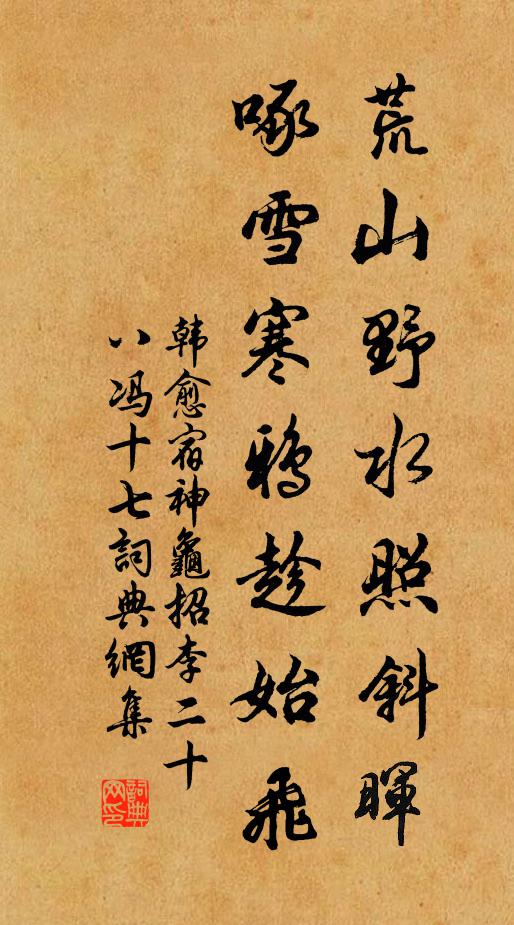 荒山野水照斜暉
啄雪寒鴉趁始飛
韩愈宿神龜招李二十
八冯十七詞典網集
詞典
网印